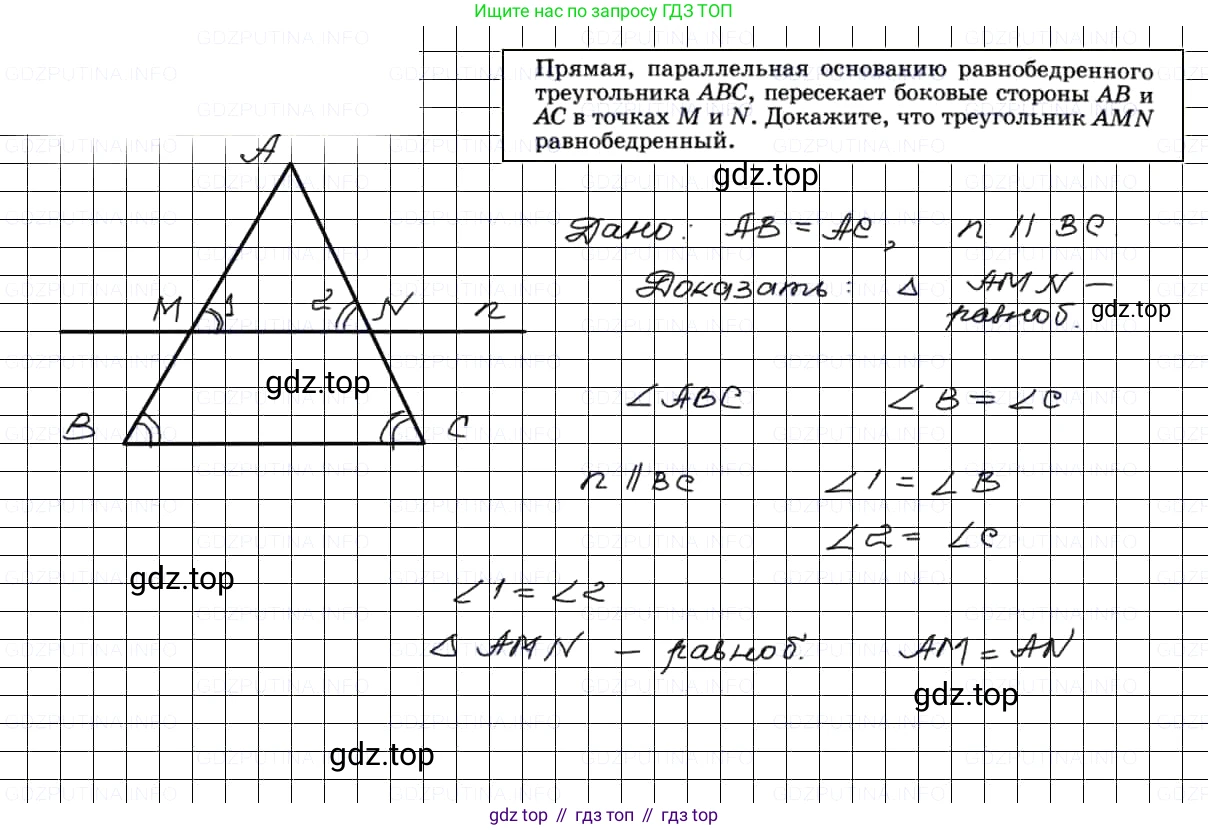 Ищите нас по запросу ГДЗ ТОП
Прямая, параллельная основанию равнобедренного
треугольника ABC, пересекает боковые стороны AB и
AC в точках M и N. Докажите, что треугольник AMN
равнобедренный.
gdz.top
A
Дано: AB = AC, n || BC.
Доказать: Δ AMN —
равноб.
gdz.top
M 1 2 N n
gdz.top
B C
∠ABC ∠B = ∠C
n || BC ∠1 = ∠B
∠2 = ∠C
gdz.top
∠1 = ∠2
Δ AMN — равноб. AM = AN
gdz.top
gdz.top
gdz top // гдз топ // гдз top
GDZPUTINA.INFO